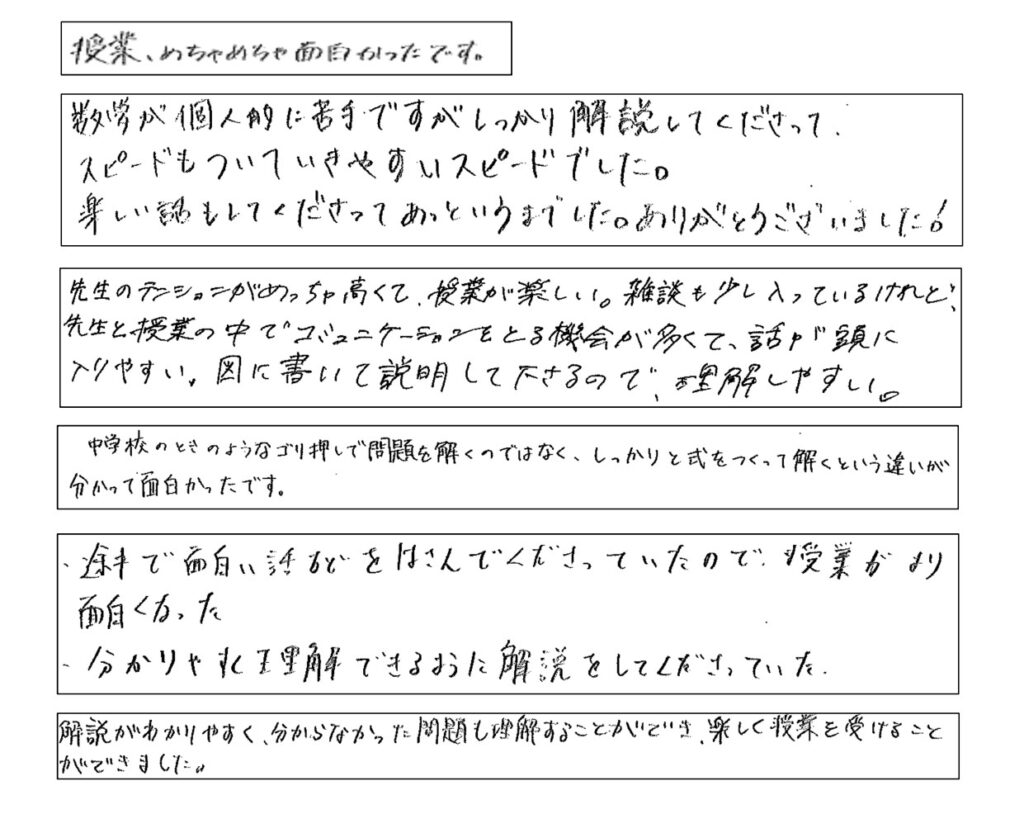 授業、めちゃめちゃ面白かったです。
数学が個人的に苦手ですがしっかり解説してくださって、
スピードもついていきやすいスピードでした。
楽しい話もしてくださってあっというまでした。ありがとうございました!
先生のテンションがめっちゃ高くて、授業が楽しい。雑談も少し入っているけれど、
先生と授業の中でコミュニケーションをとる機会が多くて、話が頭に
入りやすい。図に書いて説明して下さるので、理解しやすい。
中学校のときのようなゴリ押しで問題を解くのではなく、しっかりと式をつくって解くという違いが
分かって面白かったです。
・途中で面白い話などをはさんでくださっていたので、授業がより
面白くなった
・分かりやすく理解できるように解説をしてくださっていた。
解説がわかりやすく、分からなかった問題も理解することができ、楽しく授業を受けること
ができました。